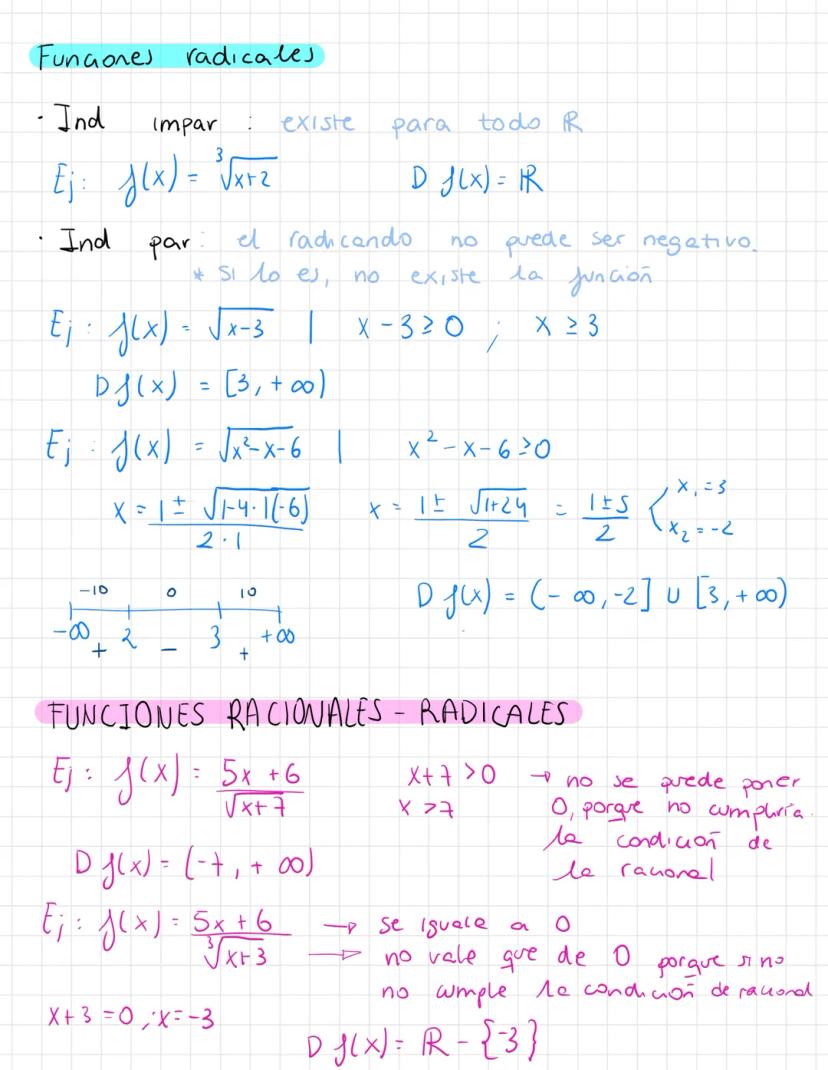 Funciones radicales
· Ind impar : existe para todo ℝ
Ej: f(x) = ∛(x+2)    D f(x) = ℝ
· Ind par: el radicando no puede ser negativo.
* Si lo es, no existe la función
Ej : f(x) = √(x-3) | x - 3 ≥ 0 ; x ≥ 3
D f(x) = [3, + ∞)
Ej : f(x) = √(x²-x-6) | x² - x - 6 ≥ 0
x = (1 ± √(1-4·1(-6)))/(2·1)    x = (1 ± √(1+24))/2 = (1±5)/2 < x₁ = 3
x₂ = -2
-10 0 10
-∞ 2 3 +∞
+ - +
D f(x) = (- ∞, -2] ∪ [3, + ∞)
FUNCIONES RACIONALES - RADICALES
Ej : f(x) = (5x + 6)/√(x+7)    x+7 > 0 → no se puede poner
x > 7    0, porque no cumpliría
la condición de
la racional
D f(x) = (-7, + ∞)
Ej : f(x) = (5x + 6)/∛(x+3) → se iguala a 0
→ no vale que de 0 porque si no
no cumple la condición de racional
x + 3 = 0 ; x = -3
D f(x) = ℝ - {-3}